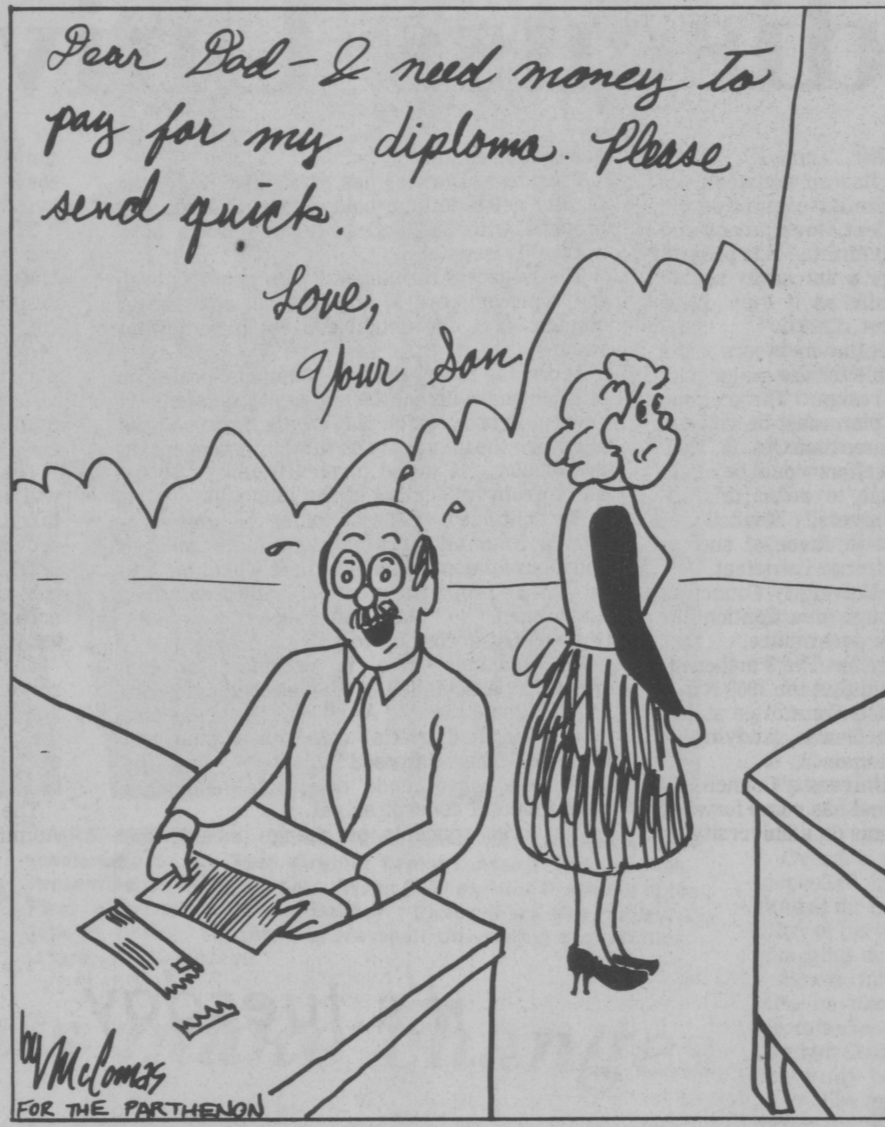 Dear Dad - I need money to
pay for my diploma. Please
send quick.
Love,
Your Son
by McComas
FOR THE PARTHENON